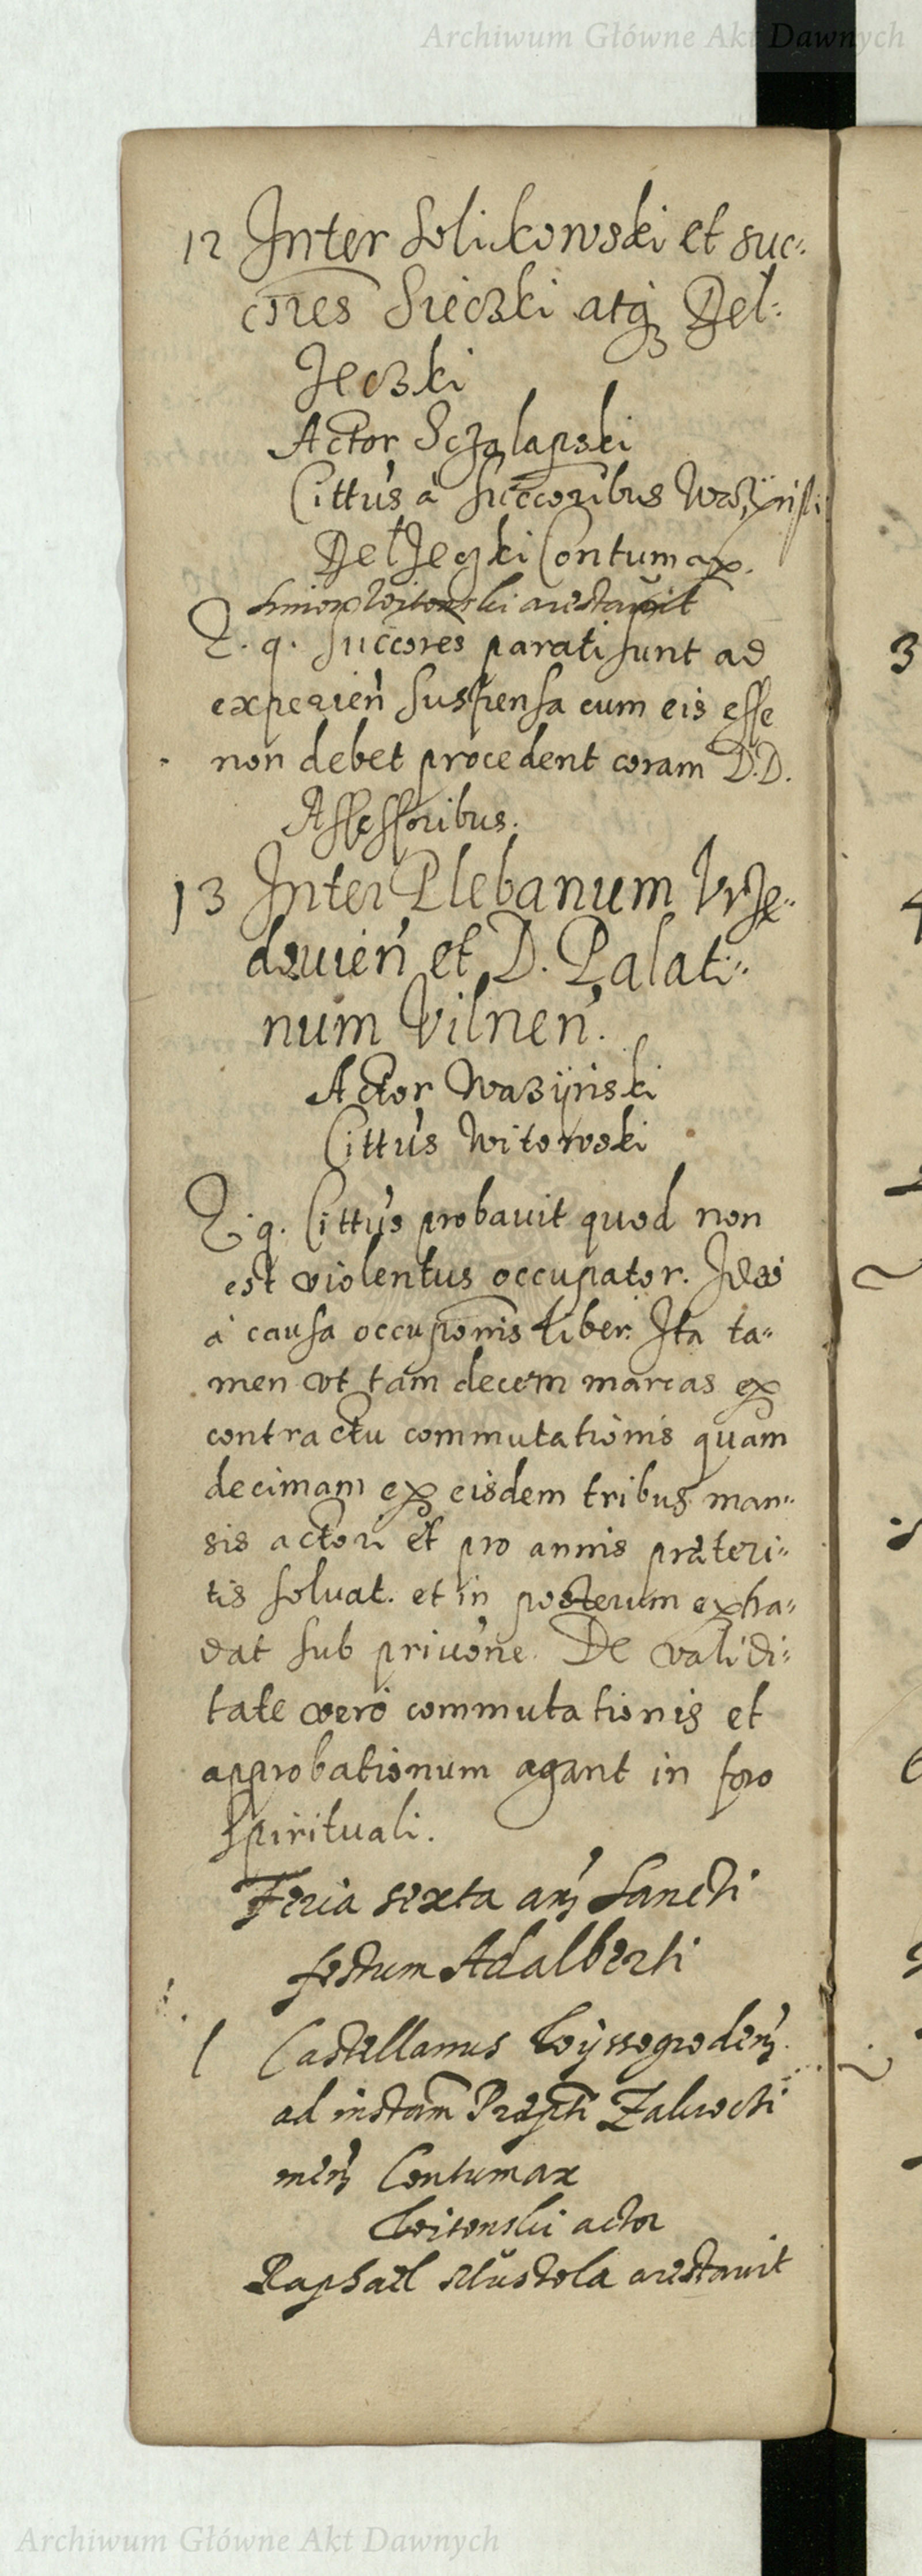 Archiwum Główne Akt Dawnych
12 Inter Solikowski et suc:
cores Sieczki atq3 Bel:
zeczki
Actor Sczalapski
Cittus à succoribus Wazÿnski
Belzeczki Contumax.
arestauit
Z. q. succores parati sunt ad
experien suspensa cum eis esse
non debet procedent coram D.D.
Assessoribus.
13 Inter Plebanum Vrze:
douien et D. Palati:
num Vilnen.
Actor Wazÿnski
Cittus Witowski
Z. q. Cittus probauit quod non
est violentus occupator. Ideo
à causa occuponis liber. Ita ta:
men vt tam decem marcas ex
contractu commutationis quam
decimam ex eisdem tribus man:
sis actori et pro annis præteri:
tis soluat. et in posterum extra:
dat sub priuone. De validi:
tate vero commutationis et
approbationum agant in foro
spirituali.
Feria sexta an3 Sancti
festum Adalberti
1 Castellanus Vÿssogroden3
ad instam Præpti Zakrocti
men3 Contumax
Voitouski actor
Raphael arestauit
3
4
Archiwum Główne Akt Dawnych